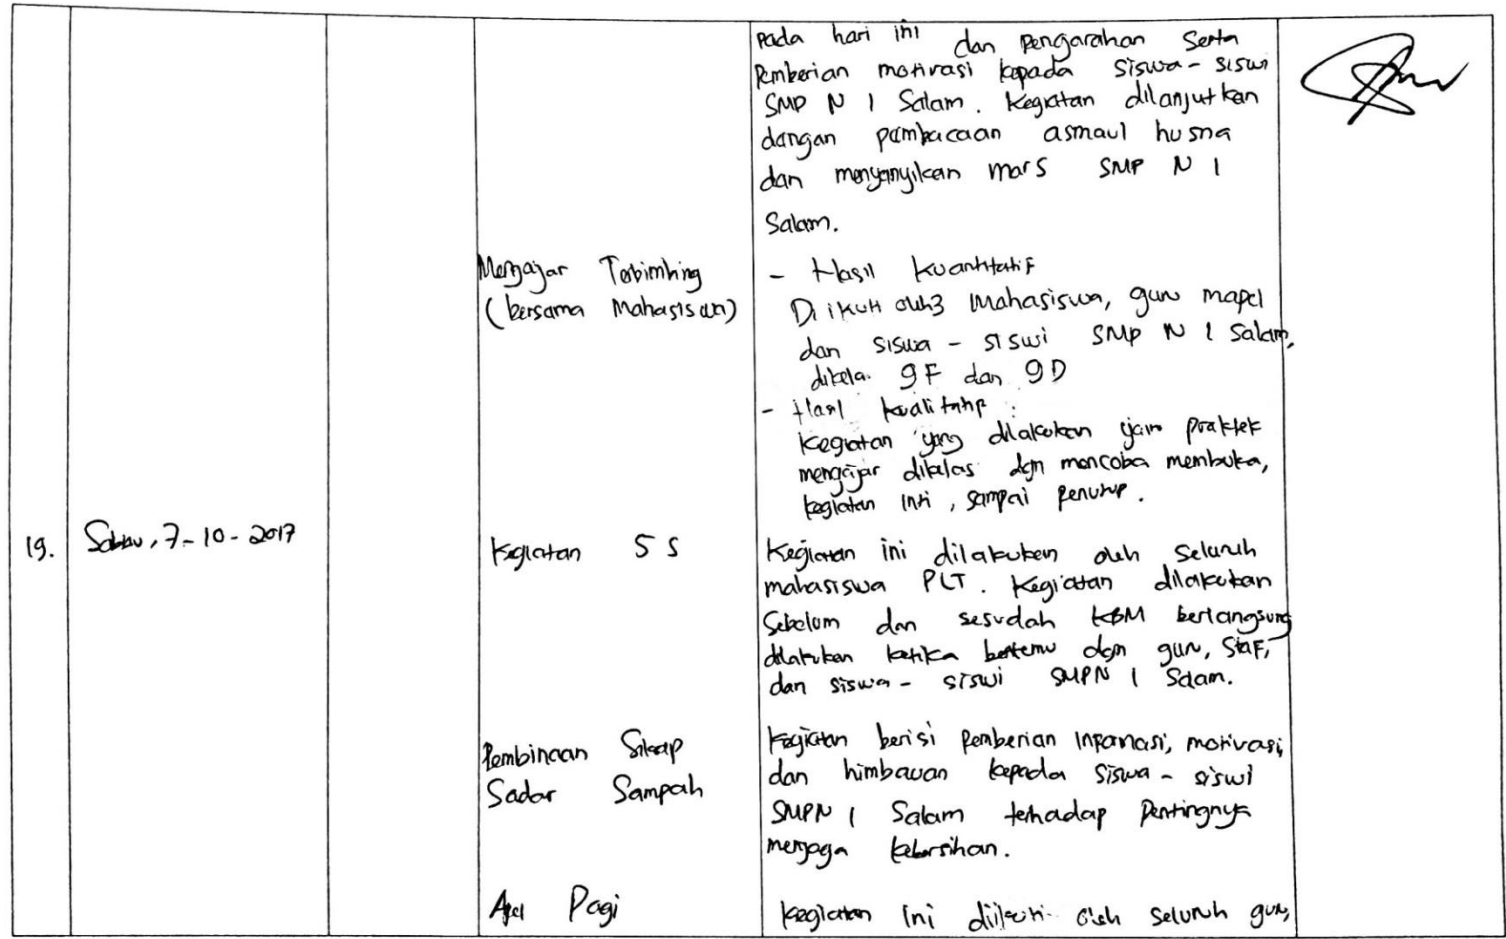 pada hari ini dan pengarahan serta
Pemberian motivasi kepada siswa - siswi
SMP N 1 Salam. Kegiatan dilanjutkan
dangan pambacaan asmaul husna
dan menyanyikan mars SMP N 1
Salam.
Mengajar Terbimbing
(bersama Mahasiswa)
- Hasil Kuantitatif
Di ikuti oleh 3 Mahasiswa, guru mapel
dan siswa - siswi SMP N 1 Salam,
dikela. 9F dan 9D
- Hasil kualitatif :
Kegiatan yang dilakukan yaitu praktek
mengajar dikelas dgn mencoba membuka,
kegiatan inti, sampai penutup.
19. Sabtu, 7-10-2017
Kegiatan 5 S
Kegiatan ini dilakukan oleh seluruh
mahasiswa PLT. Kegiatan dilakukan
Sebelum dan sesudah KBM berlangsung
dilakukan ketika bertemu dgn guru, Staf,
dan siswa - siswi SMPN 1 Salam.
Pembinaan Sikap
Sadar Sampah
Kegiatan berisi pemberian informasi, motivasi,
dan himbauan kepada siswa - siswi
SMPN 1 Salam terhadap Pentingnya
menjaga kebersihan.
Apel Pagi
Kegiatan ini diikuti oleh seluruh guru,